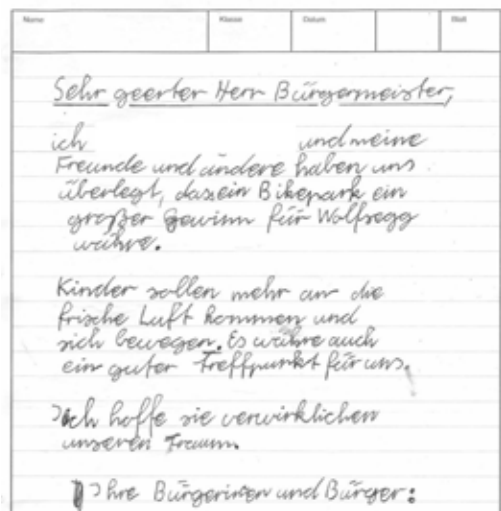 Name Klasse Datum Blatt
Sehr geerter Herr Bürgermeister,
ich und meine
Freunde und andere haben uns
überlegt, das ein Bikepark ein
großer Gewinn für Wolfsegg
währe.
Kinder sollen mehr an die
frische Luft kommen und
sich bewegen. Es währe auch
ein guter Treffpunkt für uns.
Ich hoffe sie verwirklichen
unseren Traum.
Ihre Bürgerinnen und Bürger: